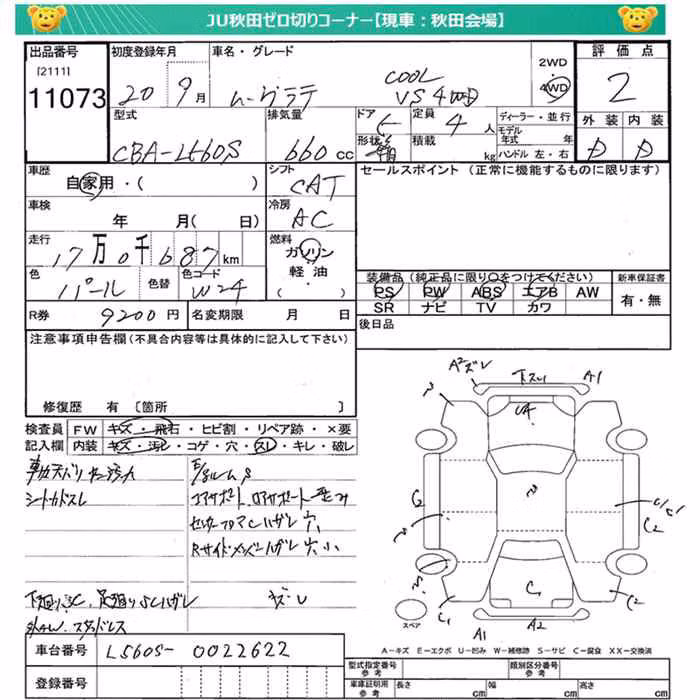 JU秋田ゼロ切りコーナー【現車：秋田会場】
出品番号 初度登録年月 車名・グレード 2WD 4WD 評価点
[2111]
11073 20 9月 ムーヴラテ COOL VS 4WD 2
型式 排気量 ドア 定員 ディーラー・並行 外装 内装
CBA-L560S 660cc 5 4人 モデル年式 年 D D
形状 積載 kg ハンドル 左・右
車歴 シフト セールスポイント（正常に機能するものに限ります）
自家用・( ) CAT
車検 冷房
年 月( 日) AC
走行 燃料
17万0千687km ガソリン
軽油
・( )
色 色替 色コード 装備品（純正品に限り〇をつけてください） 新車保証書
パール W24 PS PW ABS エアB AW 有・無
SR ナビ TV カワ
R券 9200円 名変期限 月 日 後日品
注意事項申告欄（不具合内容等は具体的に記入して下さい）
修復歴 有 〔箇所 〕
検査員 FW キズ・飛石・ヒビ割・リペア跡・×要
記入欄 内装 キズ・汚レ・コゲ・穴・スレ・キレ・破レ
シートカドスレ
コアサポート、ロアサポート
A2 A1
UA
G
C2
C1
C
C2
A1 A2
スペア
A－キズ E－エクボ U－凹み W－補修跡 S－サビ C－腐食 XX－交換済
車台番号 L560S-0022622
登録番号
型式指定番号 参考 類別区分番号 参考
車庫証明用 参考 長さ cm 幅 cm 高さ cm